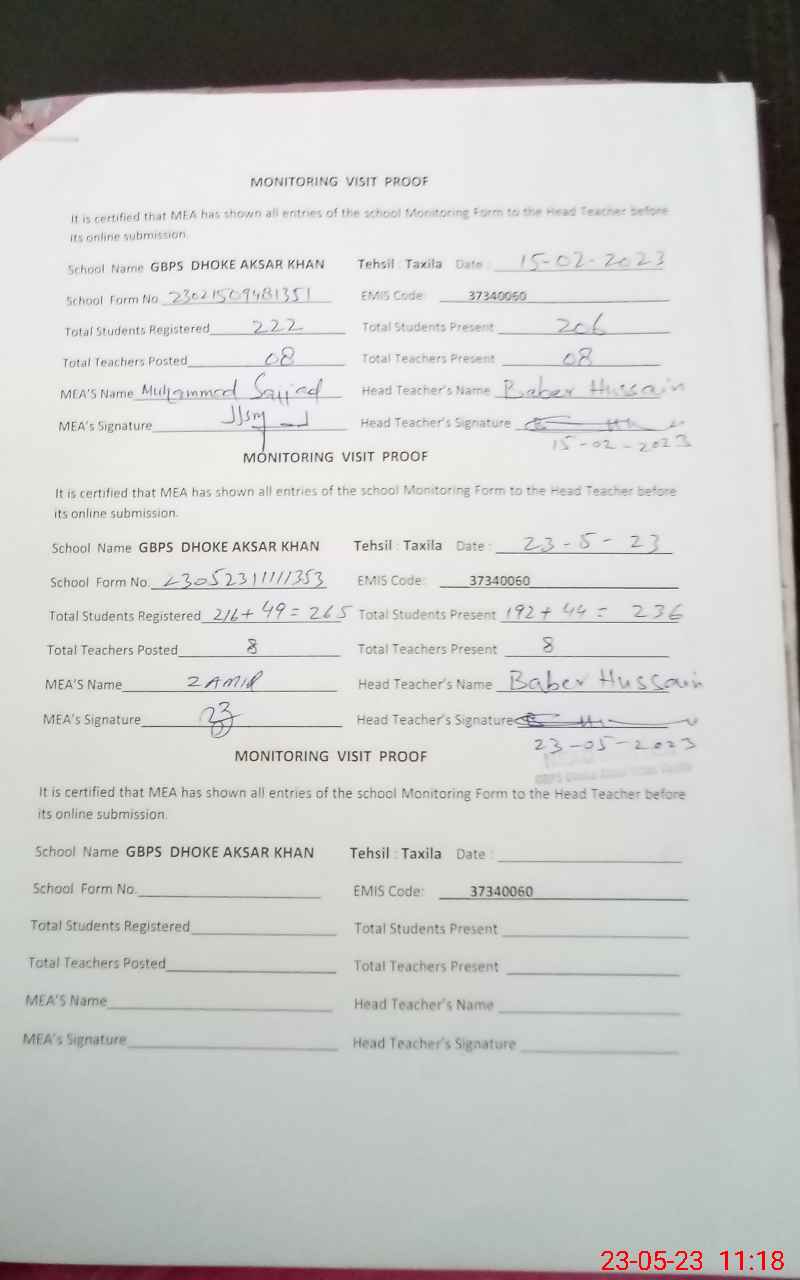 MONITORING VISIT PROOF
It is certified that MEA has shown all entries of the school Monitoring Form to the Head Teacher before
its online submission.
School Name GBPS DHOKE AKSAR KHAN Tehsil : Taxila Date : 15-02-2023
School Form No. EMIS Code: 37340060
Total Students Registered 222 Total Students Present 206
Total Teachers Posted 08 Total Teachers Present 08
MEA'S Name Muhammad Sajjad Head Teacher's Name Baber Hussain
MEA's Signature Head Teacher's Signature
15-02-2023
MONITORING VISIT PROOF
It is certified that MEA has shown all entries of the school Monitoring Form to the Head Teacher before
its online submission.
School Name GBPS DHOKE AKSAR KHAN Tehsil : Taxila Date : 23-5-23
School Form No. EMIS Code: 37340060
Total Students Registered 216+49=265 Total Students Present 192+44= 236
Total Teachers Posted 8 Total Teachers Present 8
MEA'S Name ZAMIR Head Teacher's Name Baber Hussain
MEA's Signature Head Teacher's Signature
23-05-2023
MONITORING VISIT PROOF
It is certified that MEA has shown all entries of the school Monitoring Form to the Head Teacher before
its online submission.
School Name GBPS DHOKE AKSAR KHAN Tehsil : Taxila Date :
School Form No. EMIS Code: 37340060
Total Students Registered Total Students Present
Total Teachers Posted Total Teachers Present
MEA'S Name Head Teacher's Name
MEA's Signature Head Teacher's Signature
23-05-23 11:18